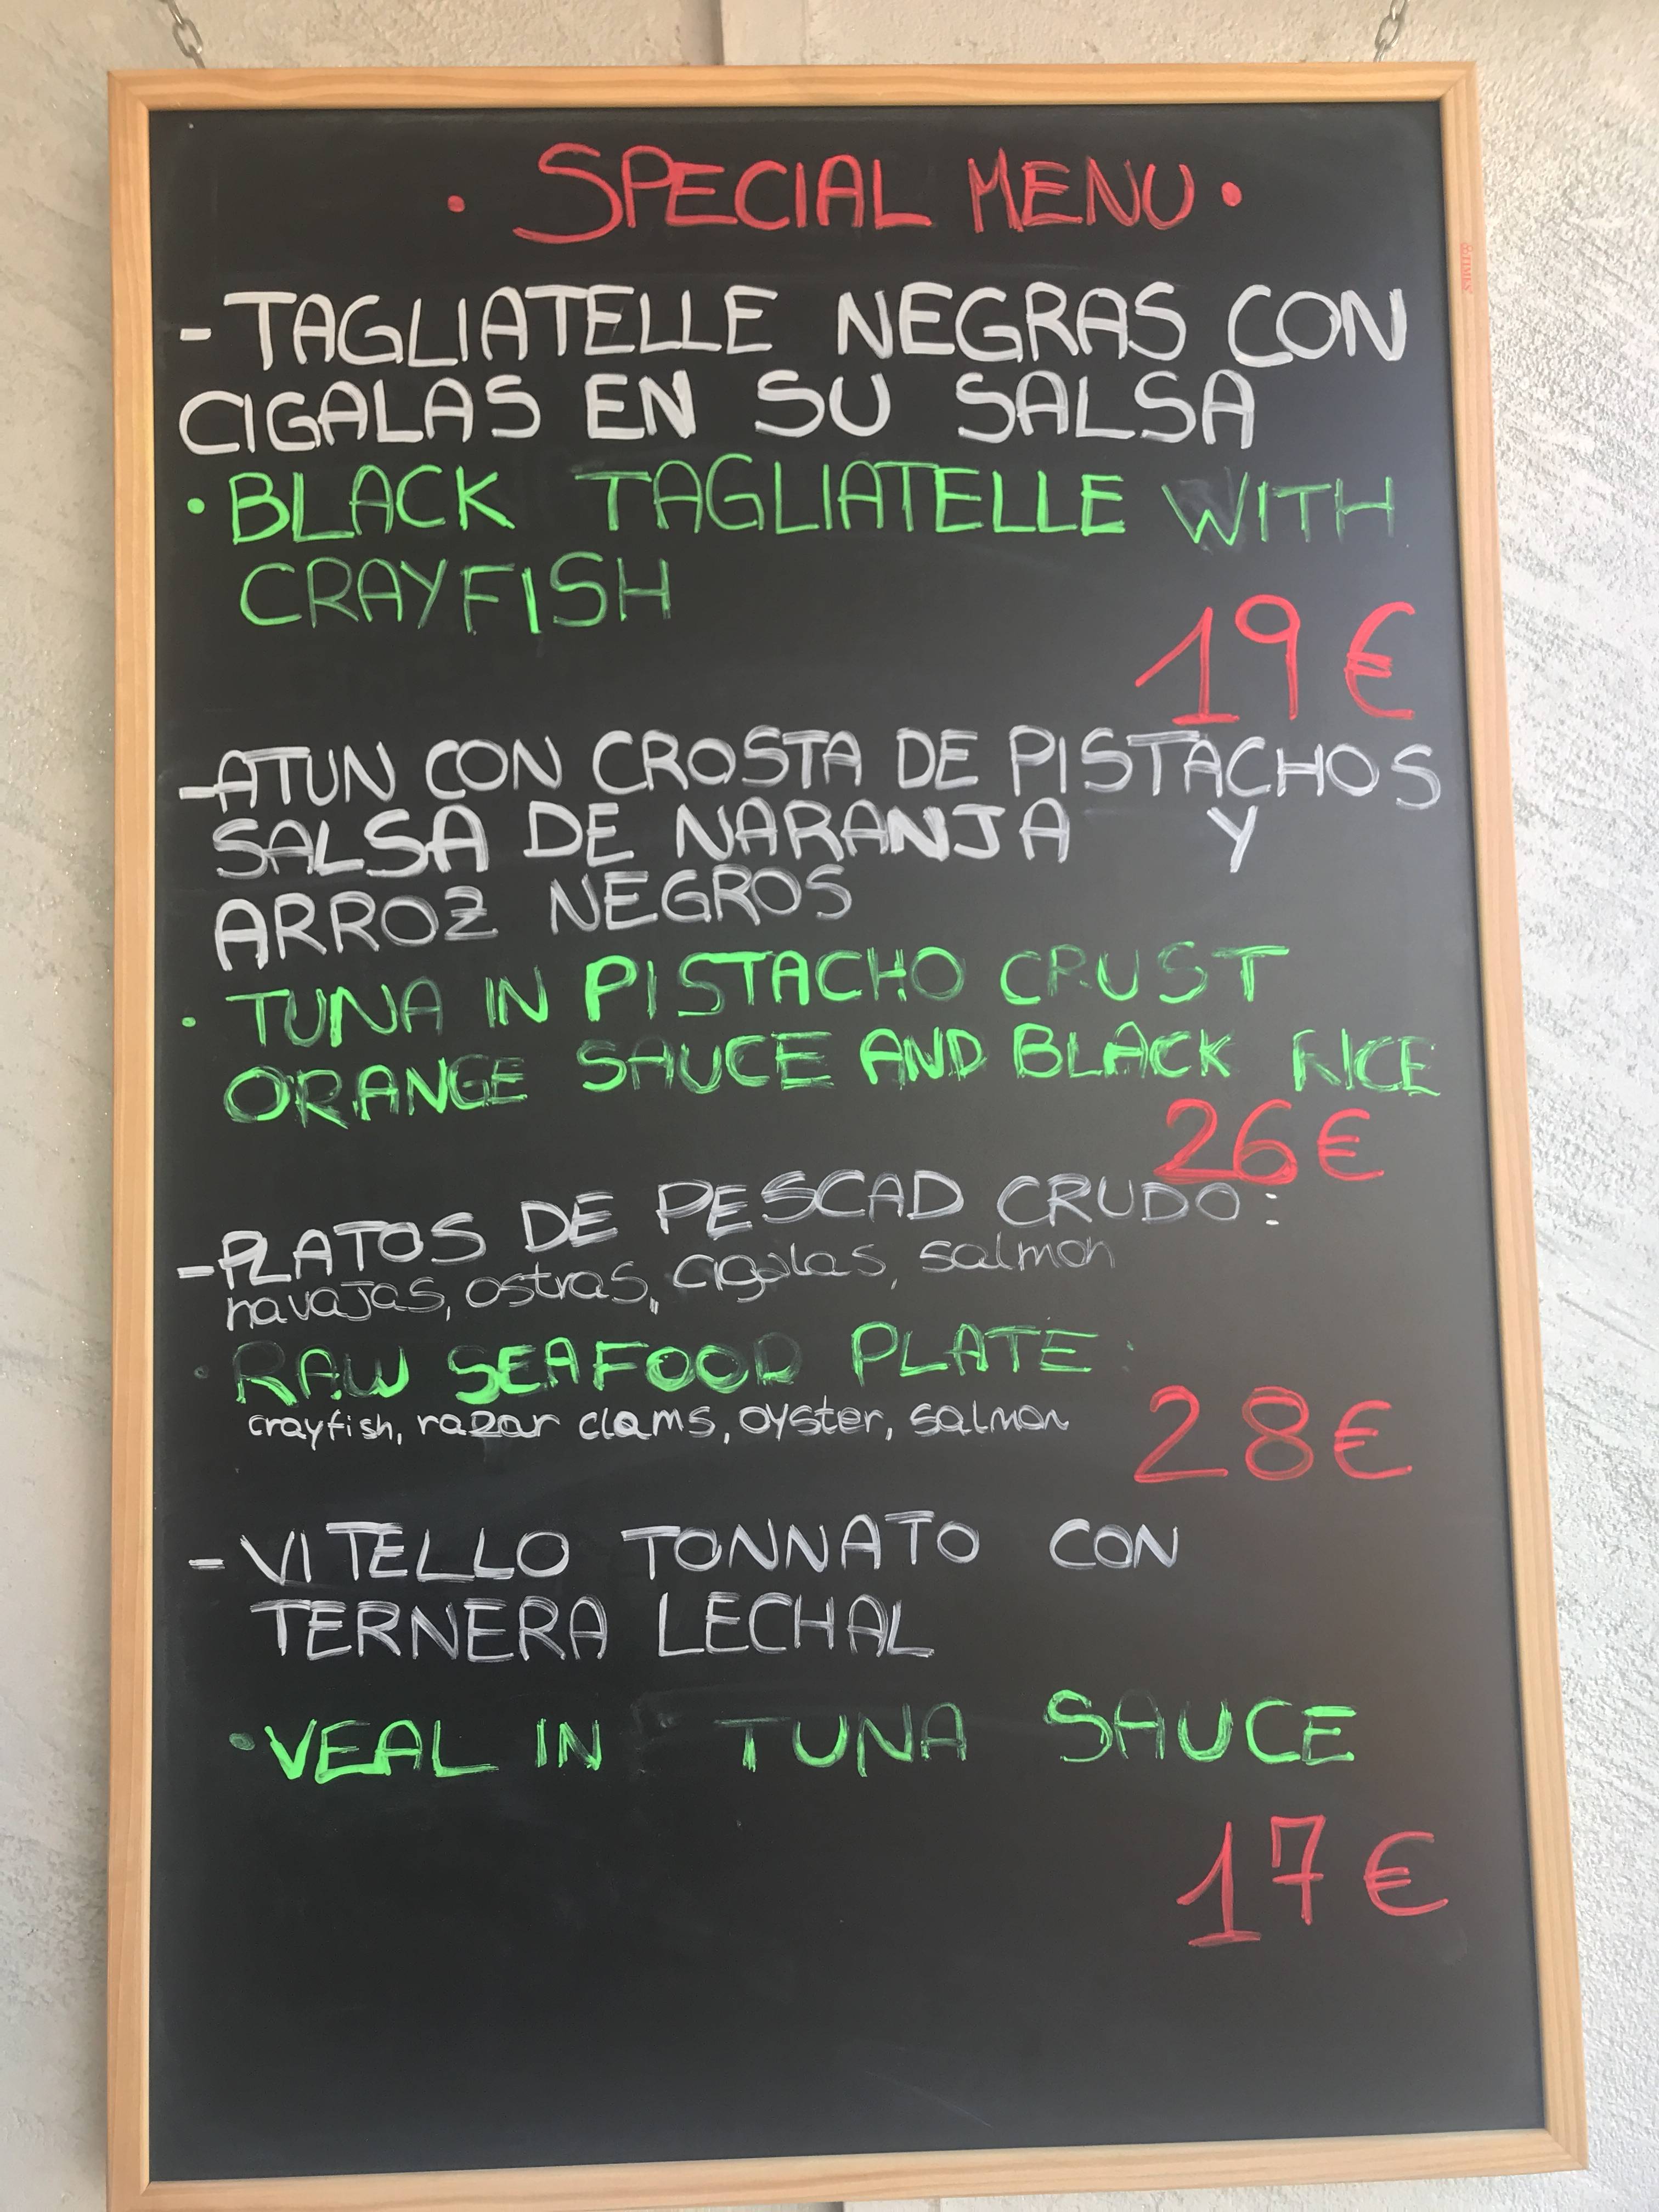 · SPECIAL MENU ·
- TAGLIATELLE NEGRAS CON
CIGALAS EN SU SALSA
· BLACK TAGLIATELLE WITH
CRAYFISH
19 €
- ATUN CON CROSTA DE PISTACHOS
SALSA DE NARANJA Y
ARROZ NEGROS
· TUNA IN PISTACHO CRUST
ORANGE SAUCE AND BLACK RICE
26 €
- PLATOS DE PESCAD CRUDO:
navajas, ostras, cigalas, salmon
· RAW SEAFOOD PLATE:
crayfish, razar clams, oyster, salmon
28 €
- VITELLO TONNATO CON
TERNERA LECHAL
· VEAL IN TUNA SAUCE
17 €